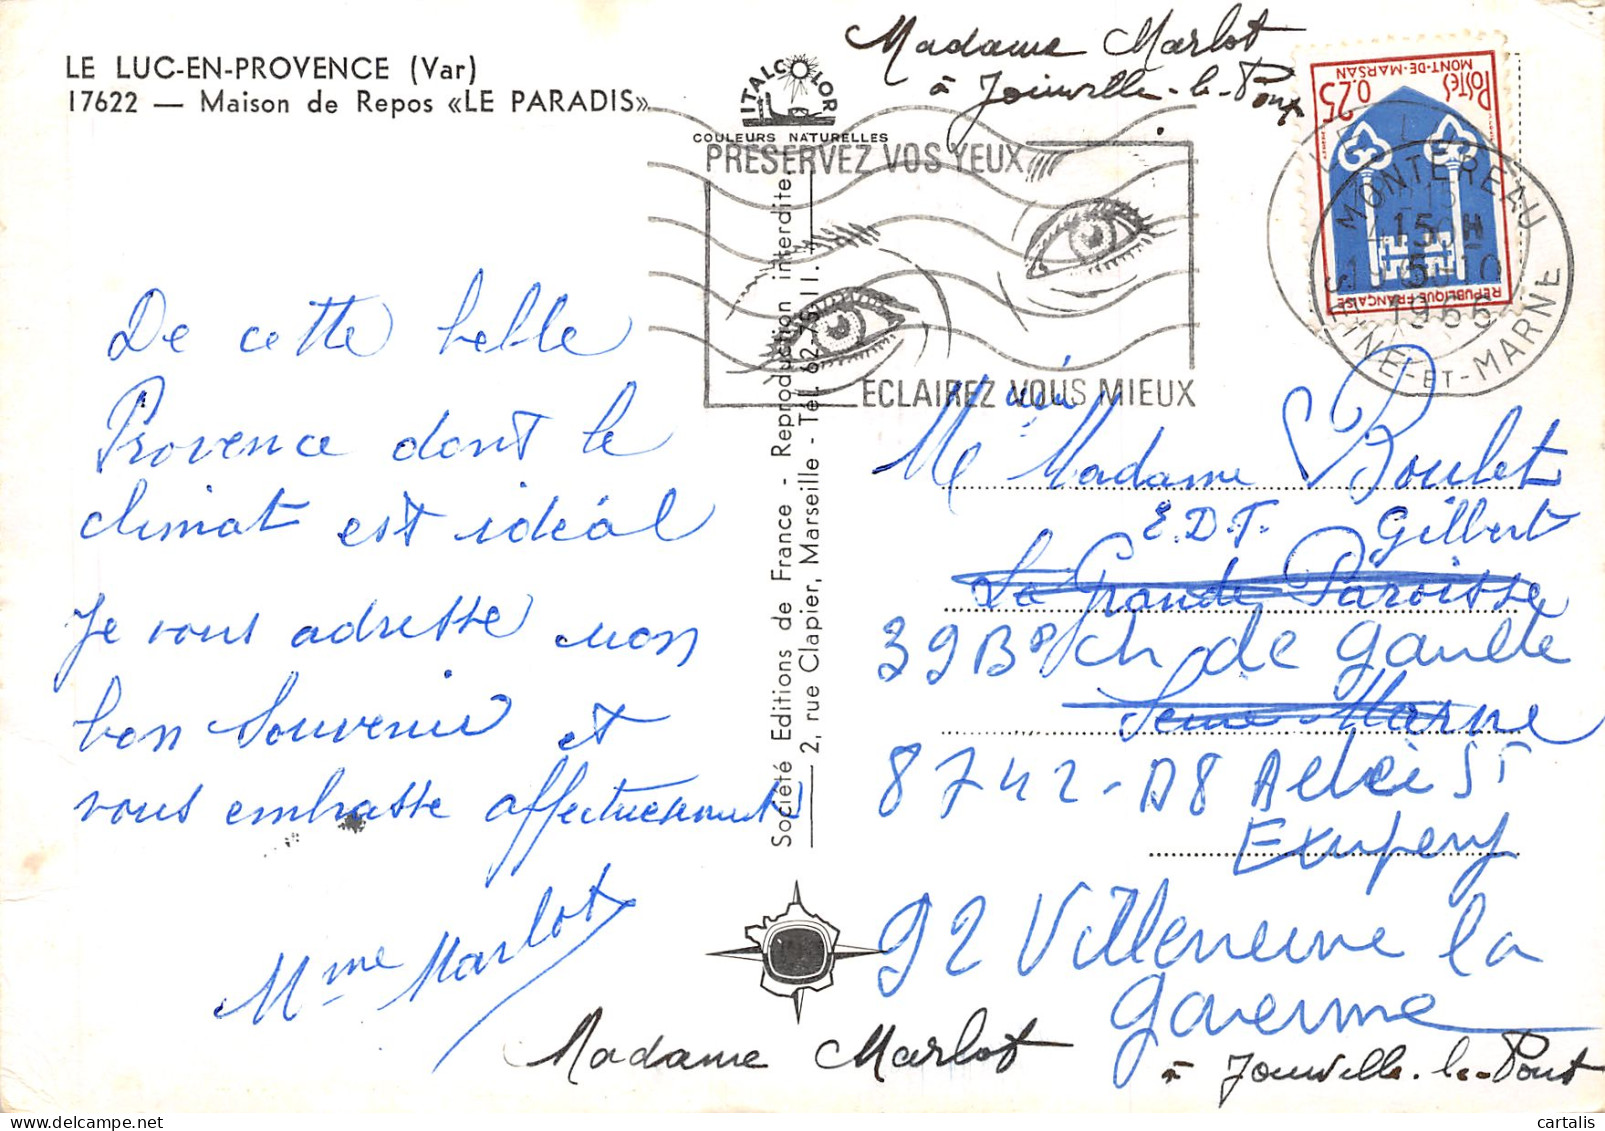 LE LUC-EN-PROVENCE (Var)
17622 — Maison de Repos «LE PARADIS»
ITALCOLOR
COULEURS NATURELLES
Madame Marlot
à Joinville-le-Pont
POSTES
0.25
MONT-DE-MARSAN
REPUBLIQUE FRANÇAISE
PRESERVEZ VOS YEUX
ECLAIREZ VOUS MIEUX
MONTEREAU
15 H
SEINE-ET-MARNE
De cette belle
Provence dont le
climat est idéal
Je vous adresse mon
bon souvenir et
vous embrasse affectueusement
Mme Marlot
Société Editions de France - Reproduction interdite
2, rue Clapier, Marseille - Tel. 62-75-11
Madame Boulet
E.D.F. Gilbert
La Grande Paroisse
39 Bs Ch de Gaulle
Seine Marne
8742-
Exupery
92 Villeneuve la
Garenne
Madame Marlot
à Joinville-le-Pont
cartalis